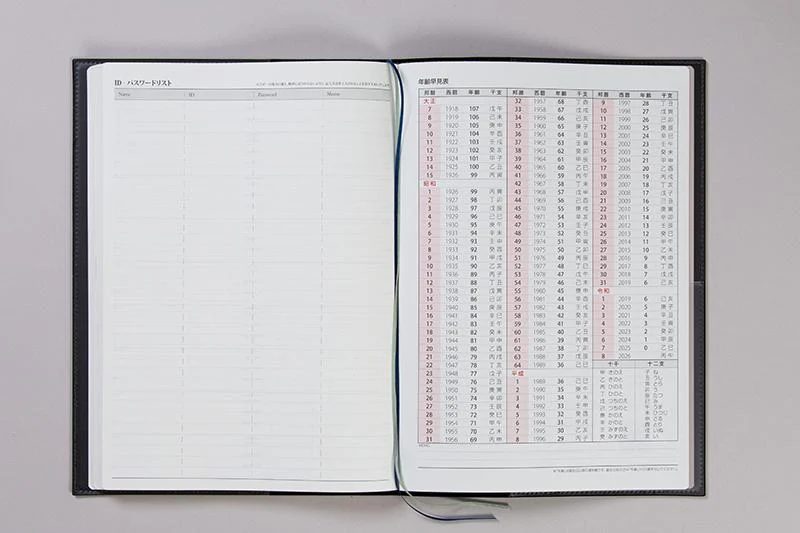 ID・パスワードリスト
Name ID Password Memo
年齢早見表
邦暦 西暦 年齢 干支
大正
7 1918 107 戊午
8 1919 106 己未
9 1920 105 庚申
10 1921 104 辛酉
11 1922 103 壬戌
12 1923 102 癸亥
13 1924 101 甲子
14 1925 100 乙丑
15 1926 99 丙寅
昭和
1 1926 99 丙寅
2 1927 98 丁卯
3 1928 97 戊辰
4 1929 96 己巳
5 1930 95 庚午
6 1931 94 辛未
7 1932 93 壬申
8 1933 92 癸酉
9 1934 91 甲戌
10 1935 90 乙亥
11 1936 89 丙子
12 1937 88 丁丑
13 1938 87 戊寅
14 1939 86 己卯
15 1940 85 庚辰
16 1941 84 辛巳
17 1942 83 壬午
18 1943 82 癸未
19 1944 81 甲申
20 1945 80 乙酉
21 1946 79 丙戌
22 1947 78 丁亥
23 1948 77 戊子
24 1949 76 己丑
25 1950 75 庚寅
26 1951 74 辛卯
27 1952 73 壬辰
28 1953 72 癸巳
29 1954 71 甲午
30 1955 70 乙未
31 1956 69 丙申
邦暦 西暦 年齢 干支
32 1957 68 丁酉
33 1958 67 戊戌
34 1959 66 己亥
35 1960 65 庚子
36 1961 64 辛丑
37 1962 63 壬寅
38 1963 62 癸卯
39 1964 61 甲辰
40 1965 60 乙巳
41 1966 59 丙午
42 1967 58 丁未
43 1968 57 戊申
44 1969 56 己酉
45 1970 55 庚戌
46 1971 54 辛亥
47 1972 53 壬子
48 1973 52 癸丑
49 1974 51 甲寅
50 1975 50 乙卯
51 1976 49 丙辰
52 1977 48 丁巳
53 1978 47 戊午
54 1979 46 己未
55 1980 45 庚申
56 1981 44 辛酉
57 1982 43 壬戌
58 1983 42 癸亥
59 1984 41 甲子
60 1985 40 乙丑
61 1986 39 丙寅
62 1987 38 丁卯
63 1988 37 戊辰
64 1989 36 己巳
平成
1 1989 36 己巳
2 1990 35 庚午
3 1991 34 辛未
4 1992 33 壬申
5 1993 32 癸酉
6 1994 31 甲戌
7 1995 30 乙亥
8 1996 29 丙子
邦暦 西暦 年齢 干支
9 1997 28 丁丑
10 1998 27 戊寅
11 1999 26 己卯
12 2000 25 庚辰
13 2001 24 辛巳
14 2002 23 壬午
15 2003 22 癸未
16 2004 21 甲申
17 2005 20 乙酉
18 2006 19 丙戌
19 2007 18 丁亥
20 2008 17 戊子
21 2009 16 己丑
22 2010 15 庚寅
23 2011 14 辛卯
24 2012 13 壬辰
25 2013 12 癸巳
26 2014 11 甲午
27 2015 10 乙未
28 2016 9 丙申
29 2017 8 丁酉
30 2018 7 戊戌
31 2019 6 己亥
令和
1 2019 6 己亥
2 2020 5 庚子
3 2021 4 辛丑
4 2022 3 壬寅
5 2023 2 癸卯
6 2024 1 甲辰
7 2025 0 乙巳
8 2026 丙午
十干
甲 きのえ
乙 きのと
丙 ひのえ
丁 ひのと
戊 つちのえ
己 つちのと
庚 かのえ
辛 かのと
壬 みずのえ
癸 みずのと
十二支
子 ね
丑 うし
寅 とら
卯 う
辰 たつ
巳 み
午 うま
未 ひつじ
申 さる
酉 とり
戌 いぬ
亥 い
MEMO